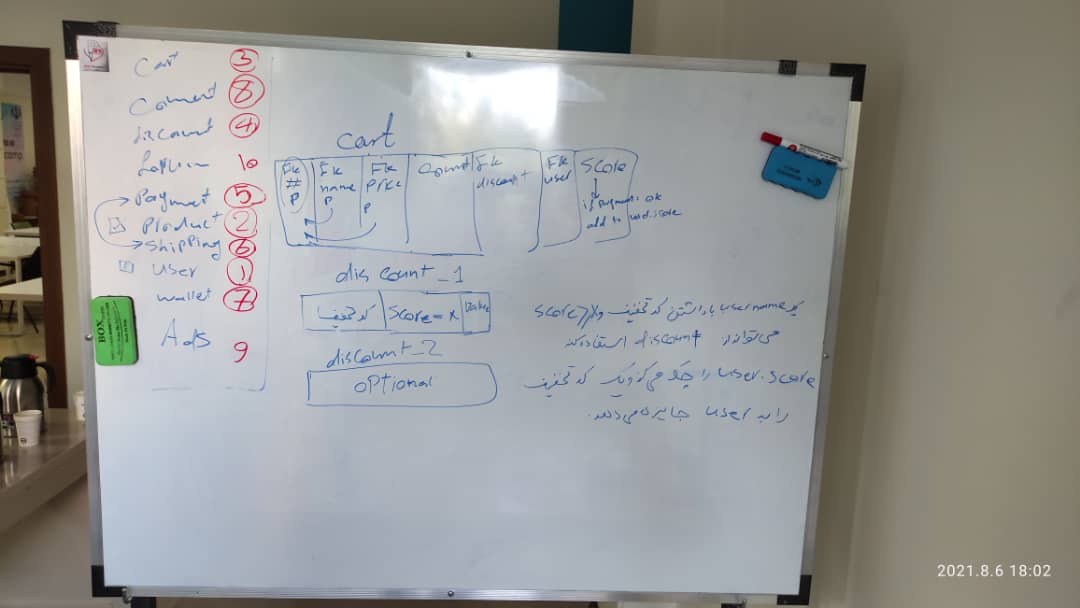 cart 3
Comment 8
discount 4
10
Payment 5
Product 2
shipping 6
user 1
wallet 7
Ads 9
cart
Fk # P
Fk name P
Fk price P
count
Fk discount
Fk user
score
if payment: ok
add to user.score
discount_1
کد تخفیف
score = x
discount_2
optional
یک username با داشتن کد تخفیف و score >
می‌تواند از discount استفاده کند
user.score را چک می‌کند و یک کد تخفیف
را به user جایزه می‌دهد.
BOX
2021.8.6 18:02